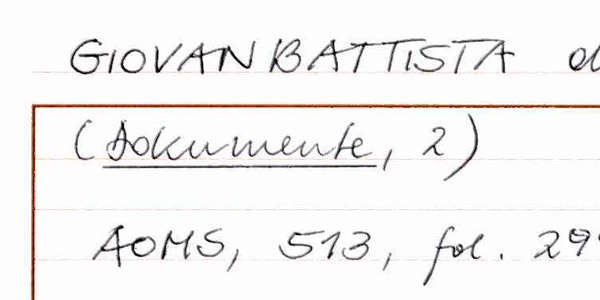 GIOVAN BATTISTA
(Dokumente, 2)
AOMS, 513, fol.